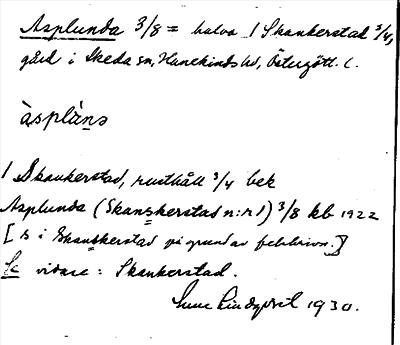 Asplunda 3/8 = halva 1 Skankerstad 3/4,
gård i Skeda sn, Hanekinds hd, Östergötl. l.
àsplàns
1 Skankerstad, rusthåll 3/4 bek
Asplunda (Skanskerstad n:r 1) 3/8 kb 1922
[s i Skanskerstad på grund av felskrivn.]
Se vidare: Skankerstad.
Sune Lindqvist 1930.